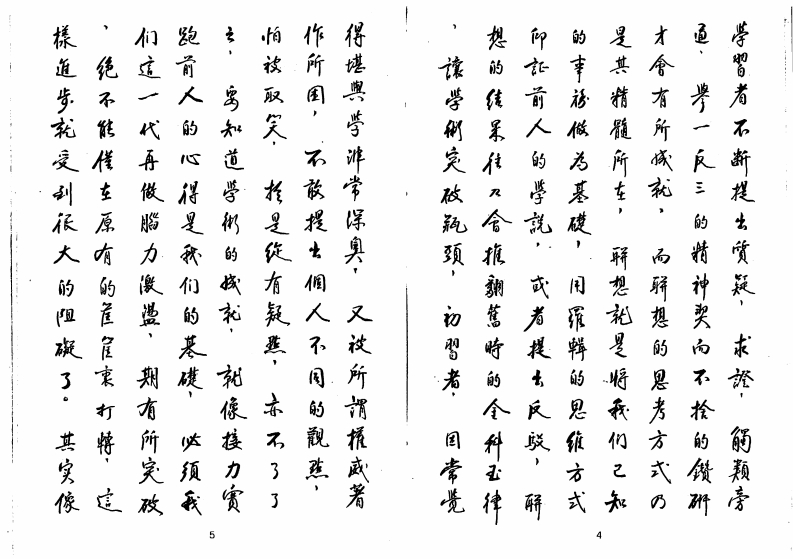 學習者不斷提出質疑，求證，觸類旁
通，舉一反三的精神契而不捨的鑽研
才會有所成就，而聯想的思考方式乃
是其精髓所在，聯想就是將我們已知
的事務做為基礎，用羅輯的思維方式
印証前人的學說，或者提出反駁，聯
想的結果往往會推翻舊時的金科玉律
，讓學術突破瓶頸，初習者，因常覺
4
得堪輿學非常深奧，又被所謂權威著
作所困，不敢提出個人不同的觀點，
怕被取笑，於是縱有疑點，亦不了了
之，要知道學術的成就，就像接力賽
跑前人的心得是我們的基礎，必須我
们這一代再做腦力激盪，期有所突破
，絕不能僅在原有的筐筐裏打轉，這
樣進步就受到很大的阻礙了。其实像
5